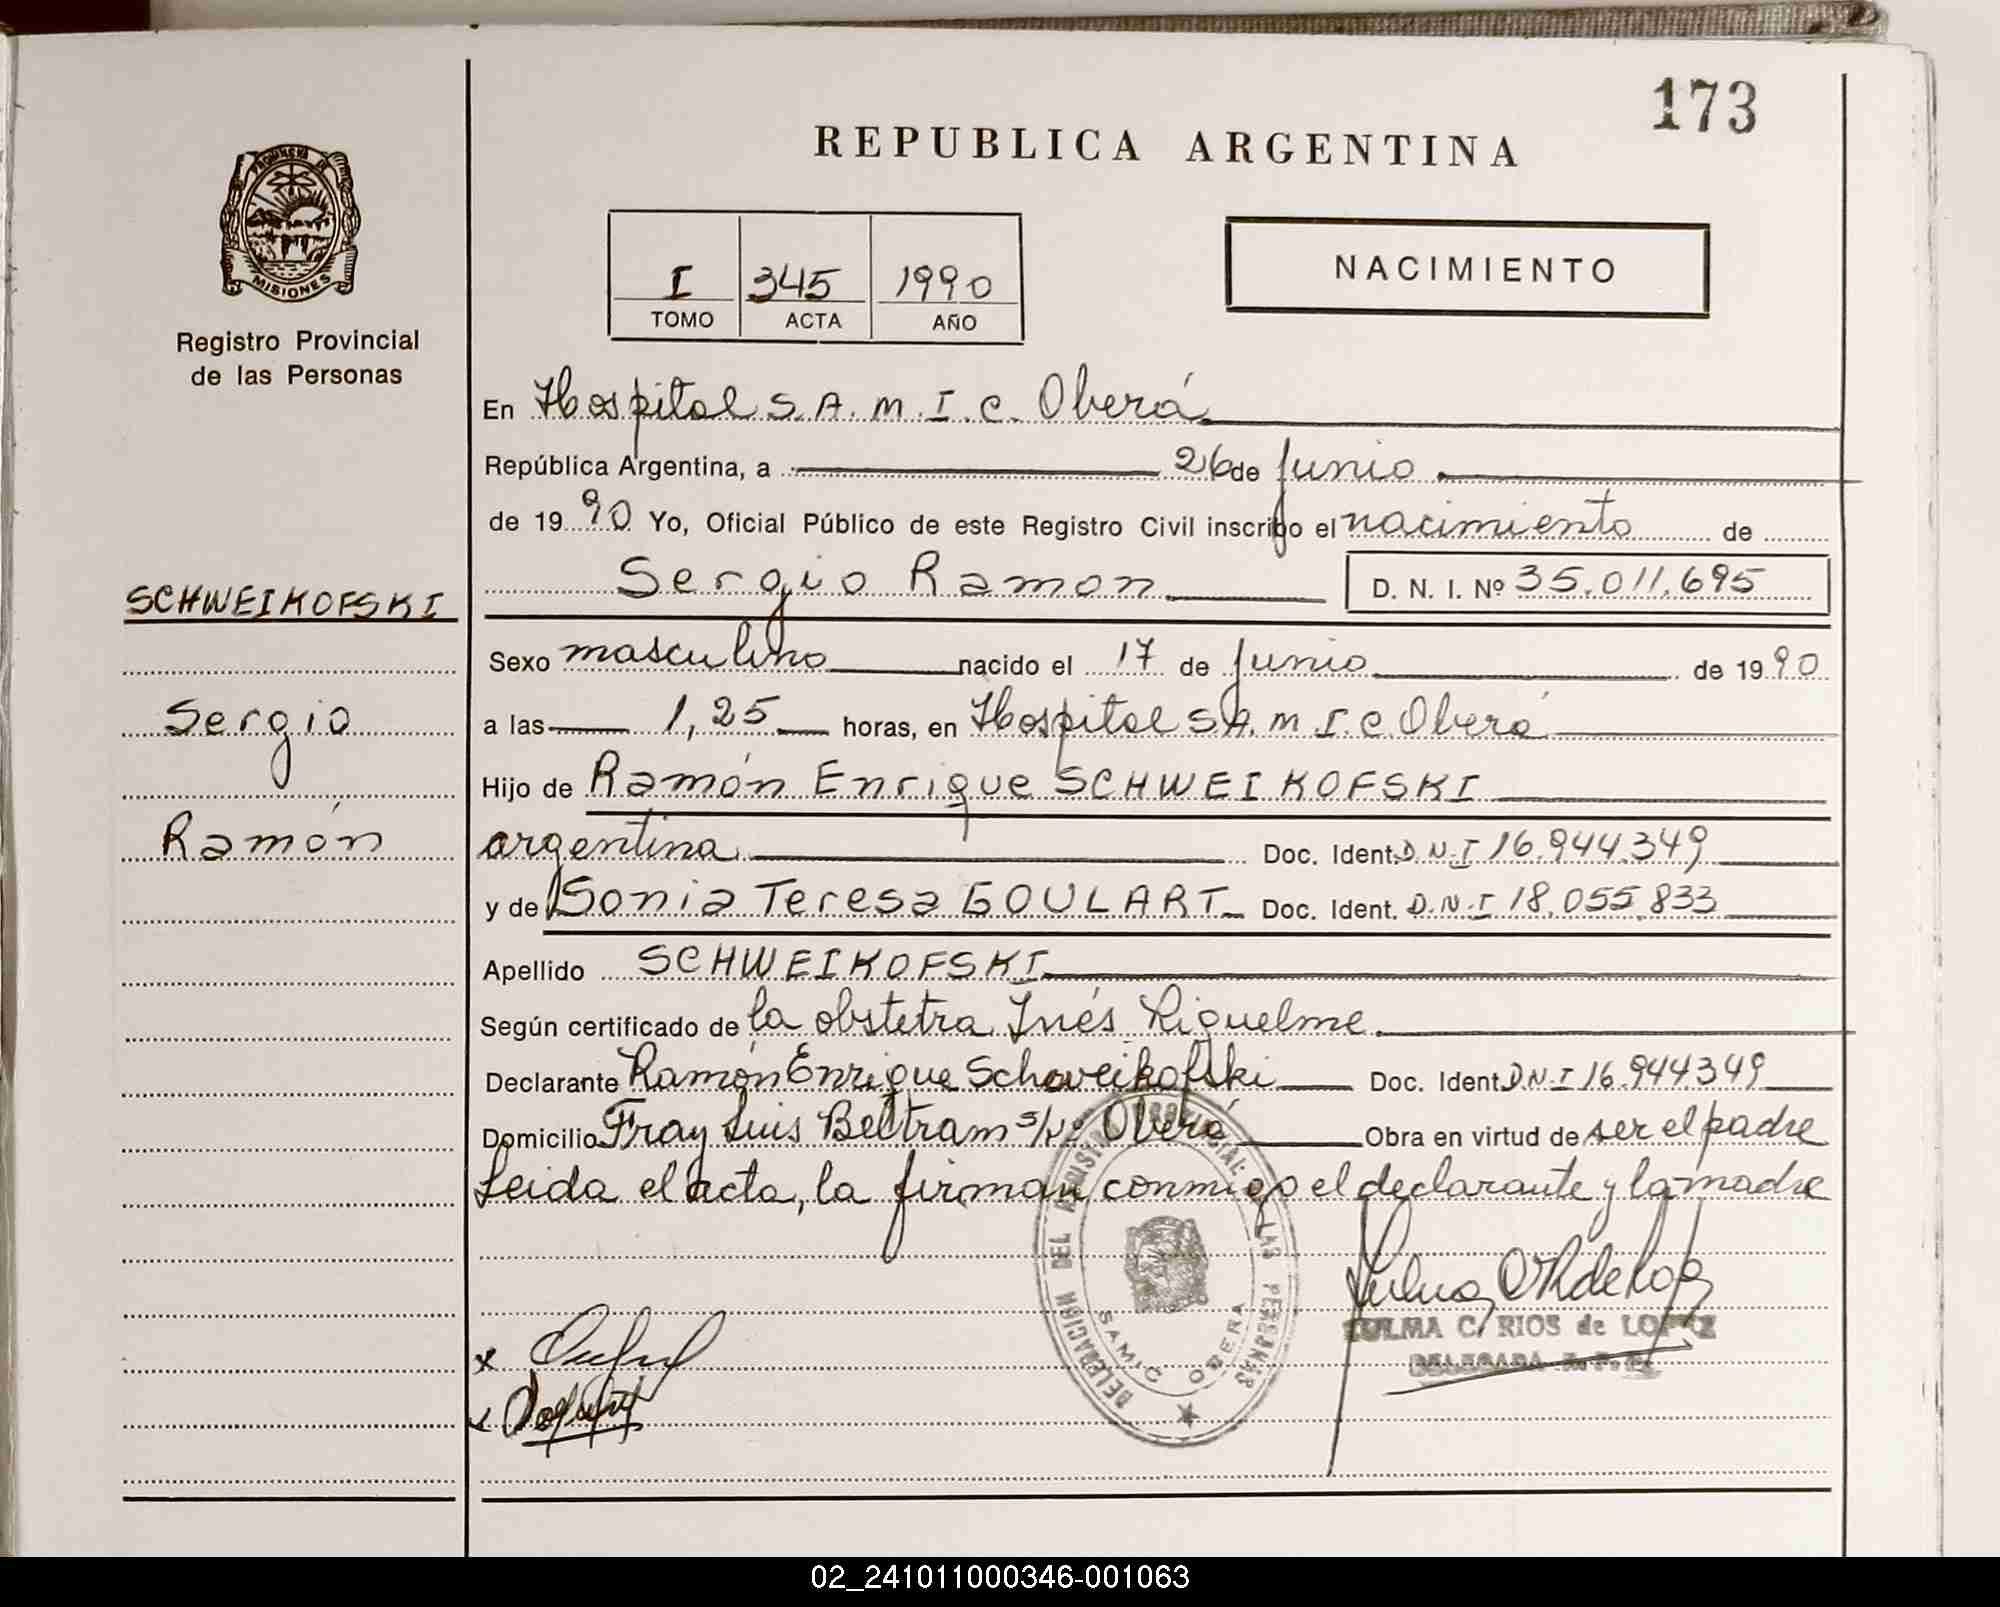 173
REPUBLICA ARGENTINA
PROVINCIA DE
MISIONES
Registro Provincial
de las Personas
I 345 1990
TOMO ACTA AÑO
NACIMIENTO
En Hospital S.A.M.I.C. Oberá
República Argentina, a 26 de Junio
de 1990 Yo, Oficial Público de este Registro Civil inscribo el nacimiento de
Sergio Ramon D. N. I. Nº 35.011.695
SCHWEIKOFSKI
Sexo masculino nacido el 17 de Junio de 1990
Sergio
a las 1,25 horas, en Hospital S.A.M.I.C. Oberá
Hijo de Ramón Enrique SCHWEIKOFSKI
Ramón
argentina Doc. Ident. D.N.I 16.944.349
y de Sonia Teresa GOULART Doc. Ident. D.N.I 18.055.833
Apellido SCHWEIKOFSKI
Según certificado de la obstetra Inés Riquelme
Declarante Ramón Enrique Schweikofski Doc. Ident. D.N.I 16.944349
Domicilio Fray Luis Beltram s/Nº Oberá Obra en virtud de ser el padre
Leida el acta, la firman conmigo el declarante y la madre
DELEGACION DEL REGISTRO PROVINCIAL DE LAS PERSONAS
SAMIC OBERA
ZULMA C. RIOS de LOPEZ
DELEGADA R.P.P.
02_241011000346-001063